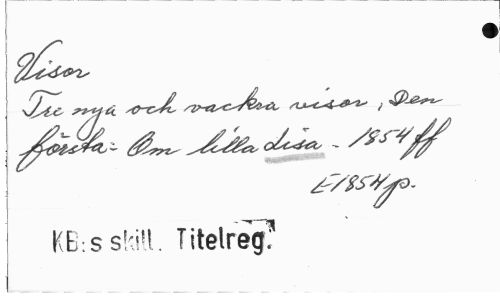 Visor
Tre nya och vackra visor, Den
första: Om lilla Lisa - 1854 ff
E1854 p.
KB:s skill. Titelreg.